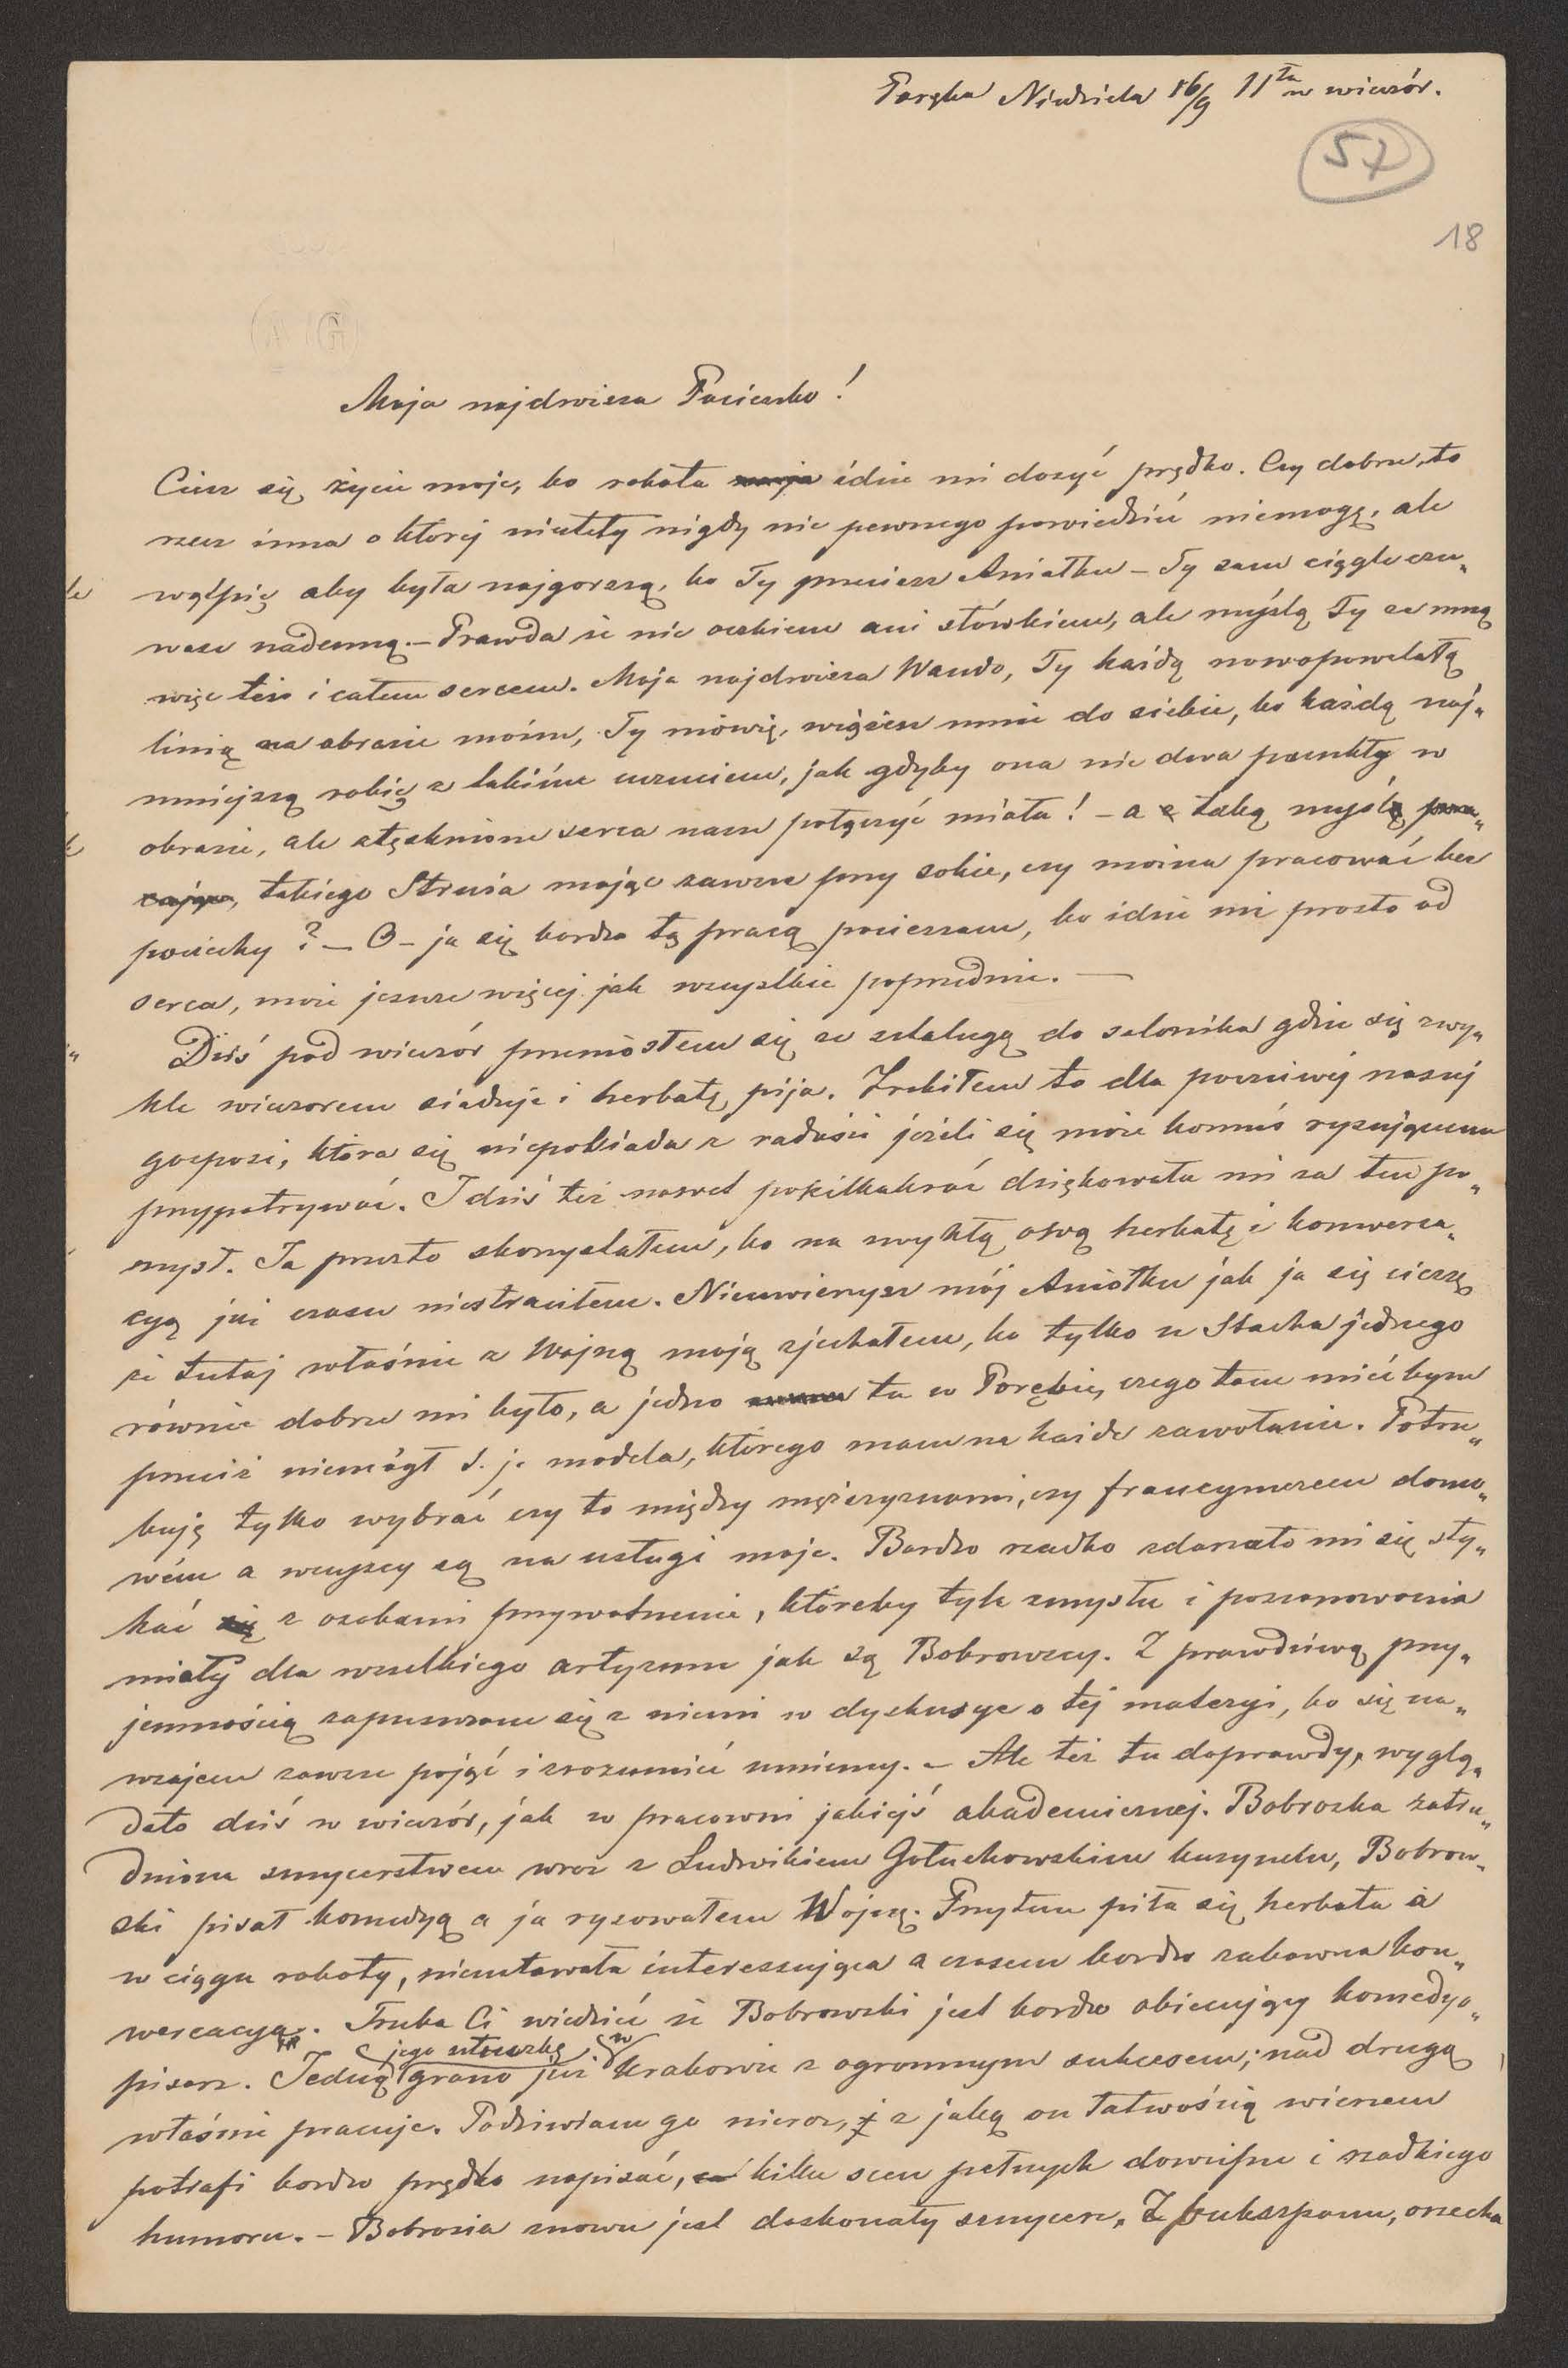 Poręba Niedziela 16/9 11ta w wieczór.
57
18
Moja najdroższa Pocieszko!
Ciesz się życie moje, bo robota moja idzie mi dosyć prędko. Czy dobrze, to
rzecz inna o której niestety nigdy nic pewnego powiedzieć niemogę, ale
wątpię aby była najgorszą, bo Ty przecież Aniołku – Ty sama ciągle czu„
wasz nademną. – Prawda że nie oczkiem ani słówkiem, ale myślą Ty ze mną
więc też i całem sercem. Moja najdroższa Wando, Ty każdą nowopowstałą
linią na obrazie moim, Ty mówię, wiążesz mnie do siebie, bo każdą naj„
mniejszą robię z takiém uczuciem, jak gdyby ona nie dwa punkty w
obrazie, ale stęsknione serca nasze połączyć miała! – a z taką myślą
takiego Strusia mając zawsze przy sobie, czy można pracować bez
pociechy? – O – ja się bardzo tą pracą pocieszam, bo idzie mi prosto od
serca, może jeszcze więcej jak wszystkie poprzednie. —
Dziś pod wieczór przeniosłem się ze sztalugą do salonika gdzie się zwy„
kle wieczorem siaduje i herbatę pija. Zrobiłem to dla poczciwej naszej
gosposi, która się nieposiada z radości jeżeli się może komuś rysującemu
przypatrywać. I dziś też nawet pokilkakroć dziękowała mi za ten po„
mysł. Ja przezto skorzystałem, bo na zwykłą ową herbatę i konwersa„
cyą już czasu niestraciłem. Nieuwierzysz mój Aniołku jak ja się cieszę
że tutaj właśnie z Wojną moją zjechałem, bo tylko u Stacha jednego
równie dobrze mi było, a jedno tu w Porębie, czego tam mieć bym
przecież niemógł t. j. modela, którego mam na każde zawołanie. Potrze„
buję tylko wybrać czy to między mężczyznami, czy fraucymerem domo„
wém a wszyscy są na usługi moje. Bardzo rzadko zdarzało mi się sty„
kać się z osobami prywatnemi, któreby tyle zmysłu i poszanowania
miały dla wszelkiego artyzmu jak są Bobrowscy. Z prawdziwą przy„
jemnością zapuszczam się z niemi w dyskusye o tej materyi, bo się na„
wzajem zawsze pojąć i zrozumieć umiemy. – Ale też tu doprawdy, wyglą„
dało dziś w wieczór, jak w pracowni jakiejś akademicznej. Bobroska zatru„
dniona snycerstwem wraz z Ludwikiem Gołuchowskim kuzynem, Bobrow„
ski pisał komedyą a ja rysowałem Wojnę. Przytem piła się herbata a
w ciągu roboty, nieustawała interessująca a czasem bardzo zabawna kon„
wersacya. Trzeba Ci wiedzieć że Bobrowski jest bardzo obiecujący komedyo„
pisarz. Jedną jego sztuczkę grano już w Krakowie z ogromnym sukcesem; nad drugą
właśnie pracuje. Podziwiam go nieraz, z jaką on łatwością wierszem
potrafi bardzo prędko napisać, kilka scen pełnych dowcipu i rzadkiego
humoru. – Bobrosia znowu jest doskonały snycerz. Z bukszpanu, orzecha